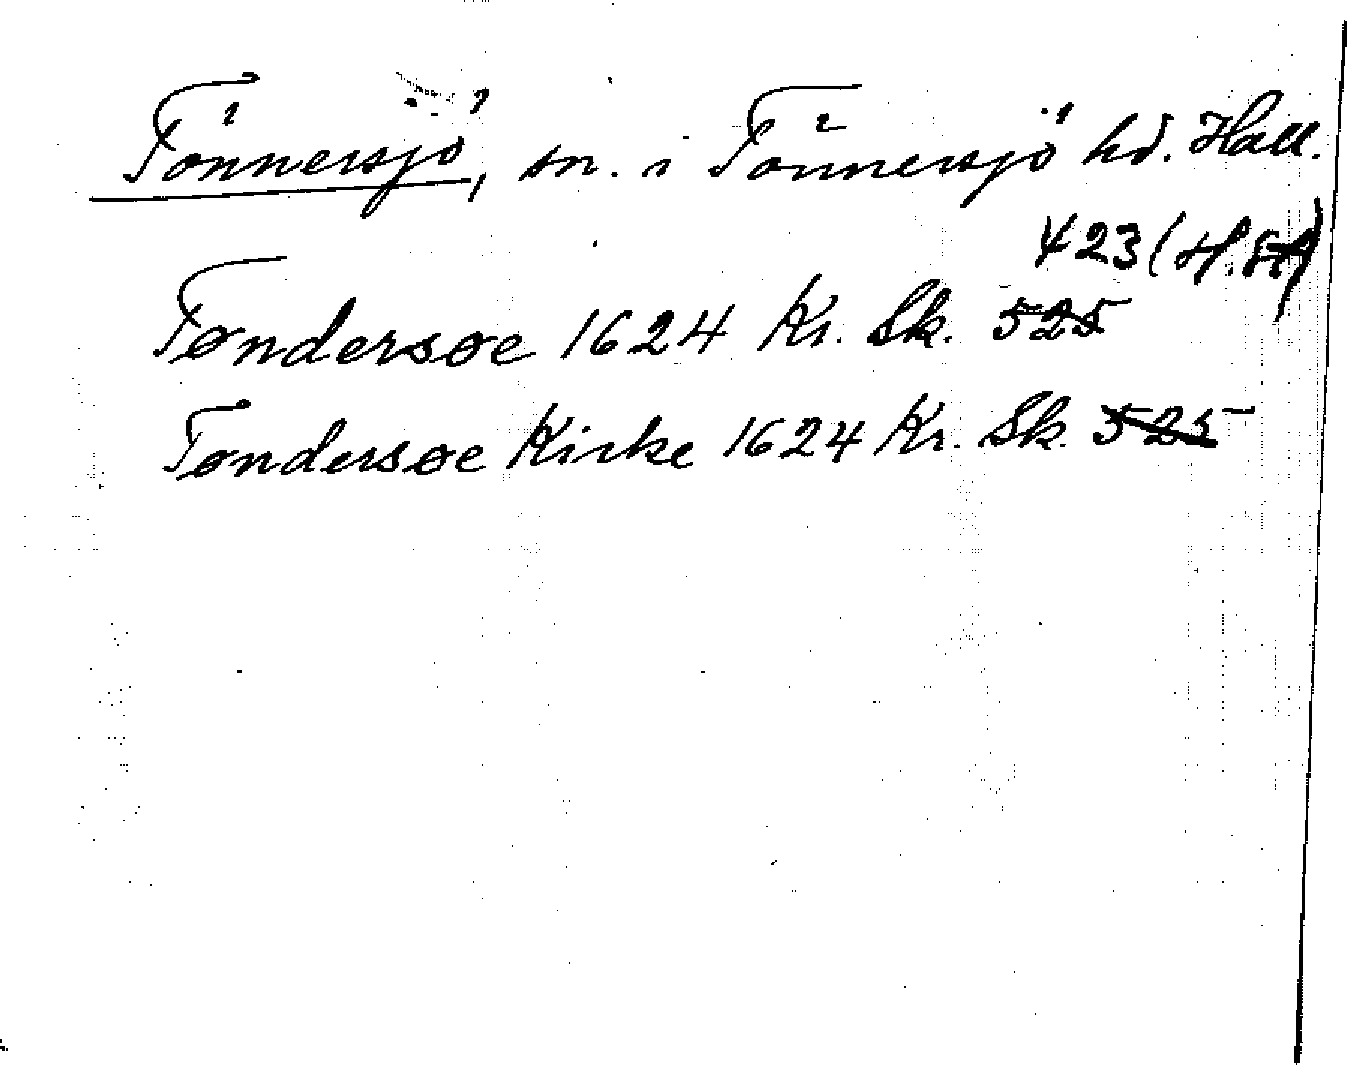 Tönnersjö, sn. i Tönnersjö hd. Hall.
423 (H.
Tøndersøe 1624 Kr. Sk. 525
Tøndersøe Kirke 1624 Kr. Sk. 525